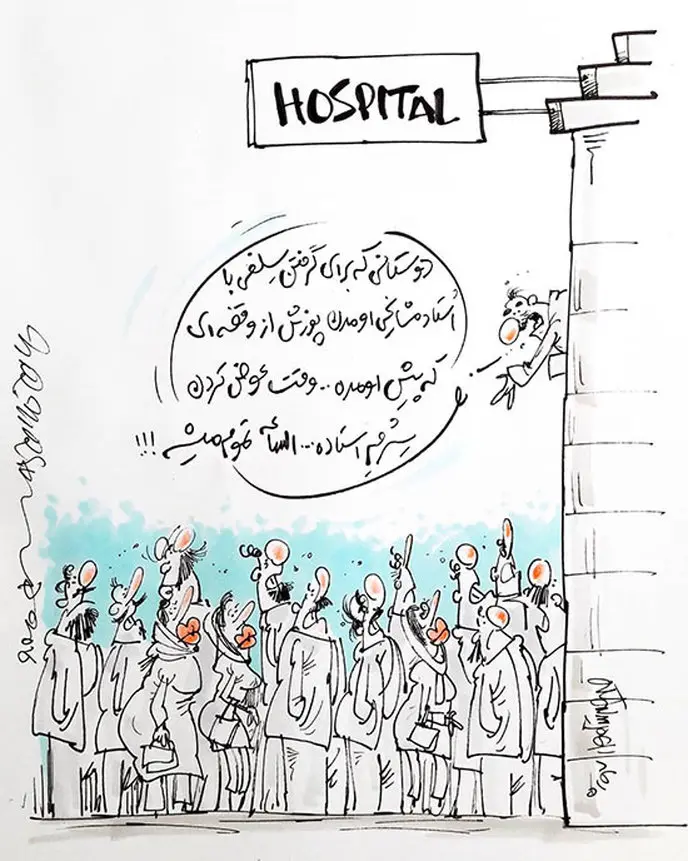 HOSPITAL
دوستانی که برای گرفتن سلفی با
استاد مشایخی اومدن پوزش از وقفه ای
که پیش اومده ... وقت عوض کردن
سِرُمِ استاده ... الساعه تموم میشه !!!